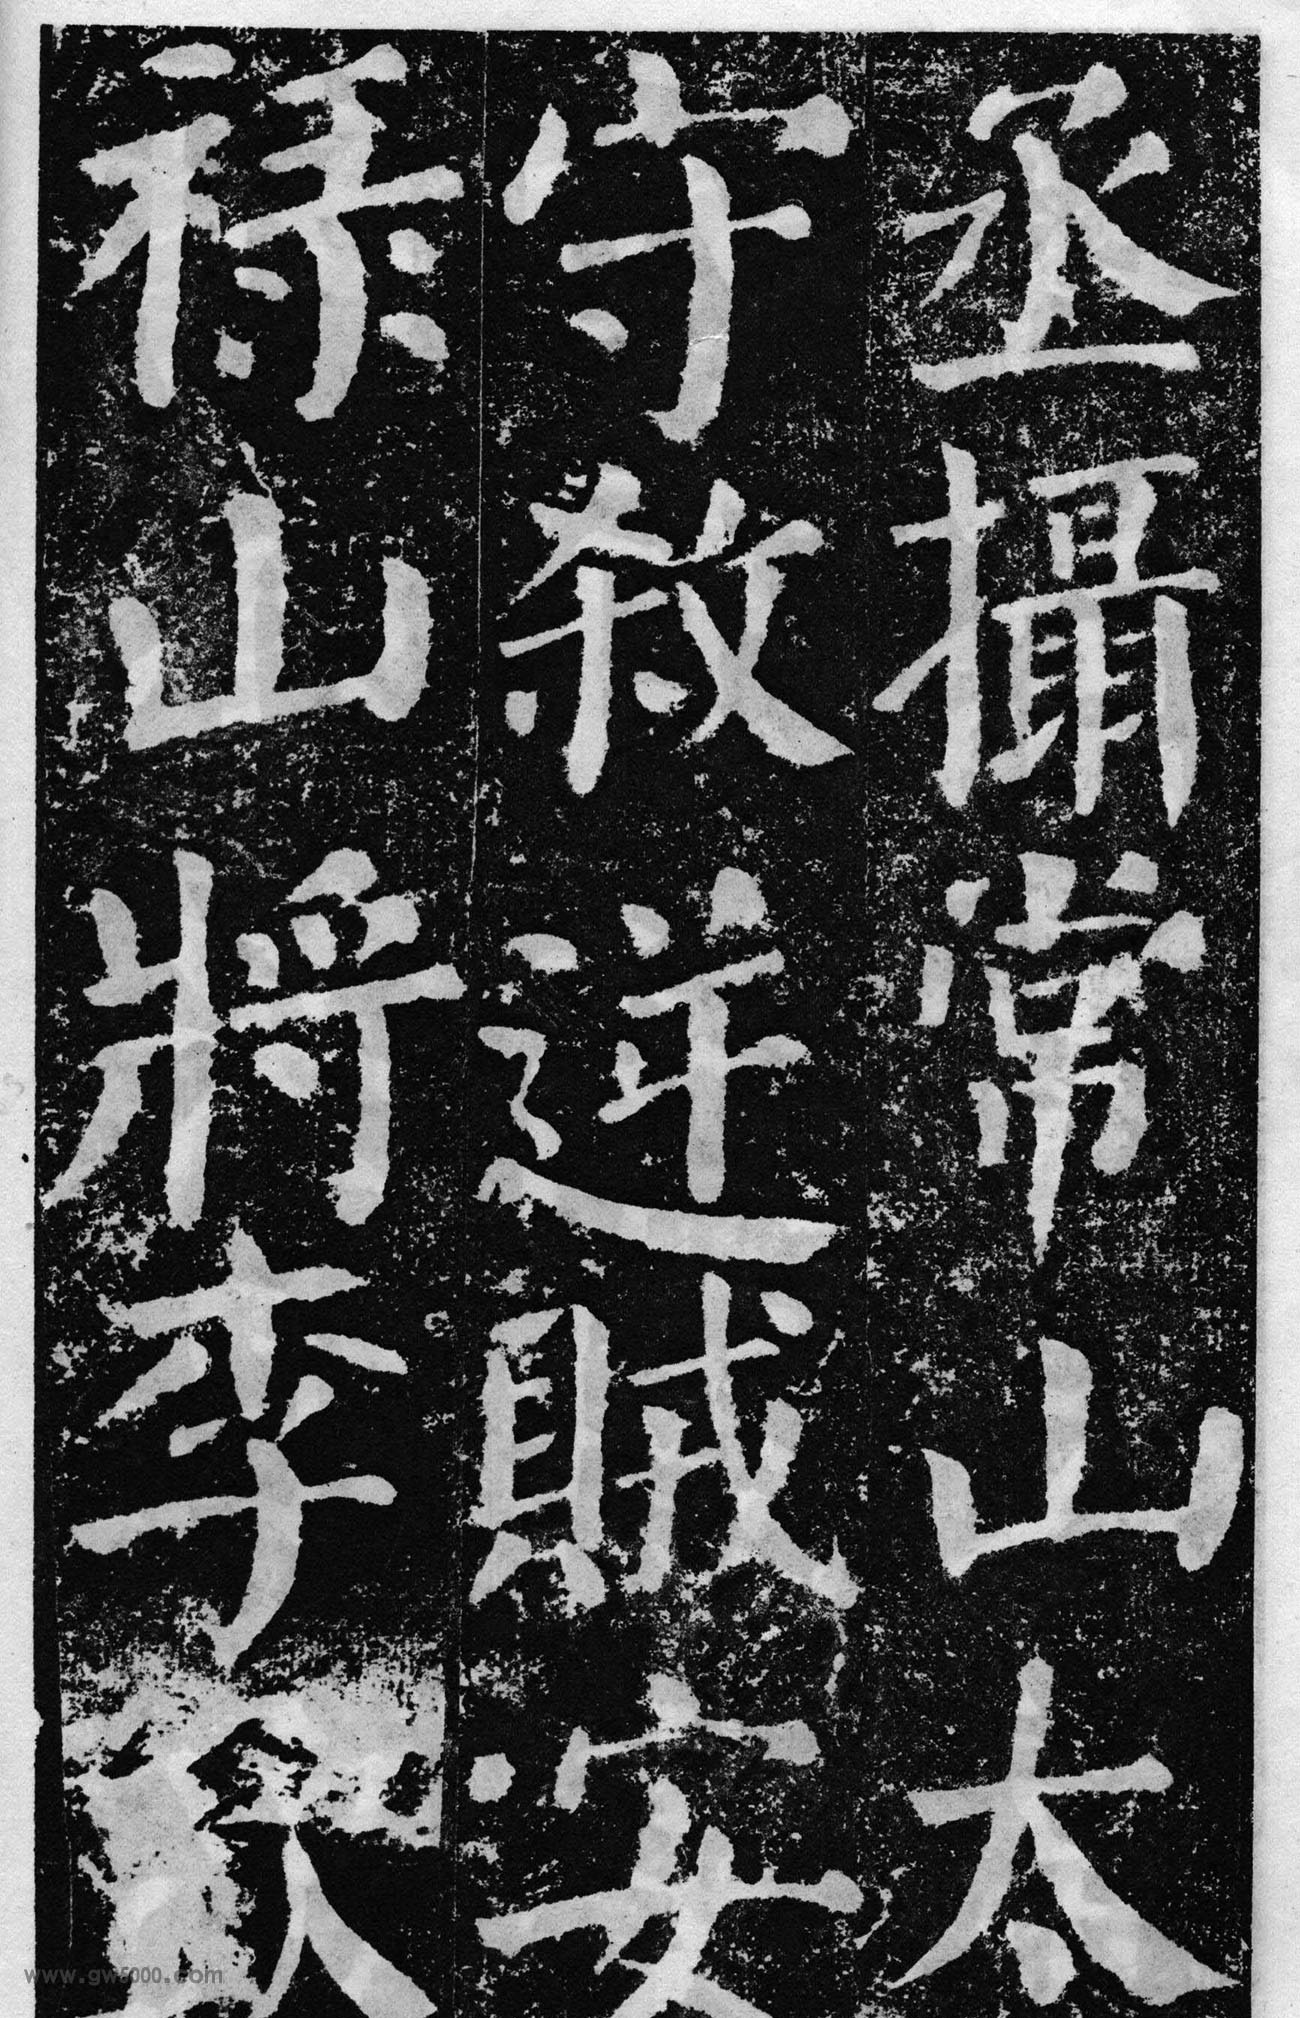 丞攝常山太
守殺逆賊安
祿山將李欽
www.gw5000.com